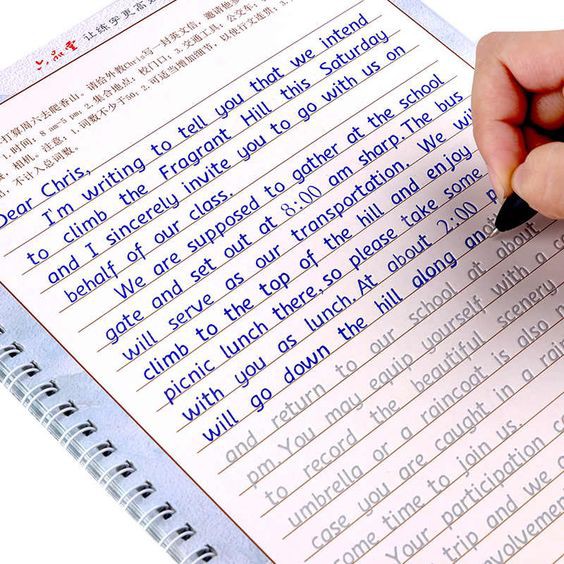 六品堂 让练字更高
打算周六去爬香山。请给外教Chris写一封英文信，邀请他
1.时间：8 am-5 pm; 2.集合地点：校门口; 3.交通工具：公交车;
相机。注意：1.词数不少于50; 2.可适当增加细节，以使行文连贯; 3.
不计入总词数。
Dear Chris,
I'm writing to tell you that we intend
to climb the Fragrant Hill this Saturday
and I sincerely invite you to go with us on
behalf of our class.
We are supposed to gather at the school
gate and set out at 8:00 am sharp. The bus
will serve as our transportation. We will
climb to the top of the hill and enjoy
picnic lunch there, so please take some
with you as lunch. At about 2:00 p
will go down the hill along an
and return to our school at about
pm. You may equip yourself with a c
to record the beautiful scenery
umbrella or a raincoat is also n
case you are caught in a rain
ome time to join us.
Your participation
trip and we a
involvemen